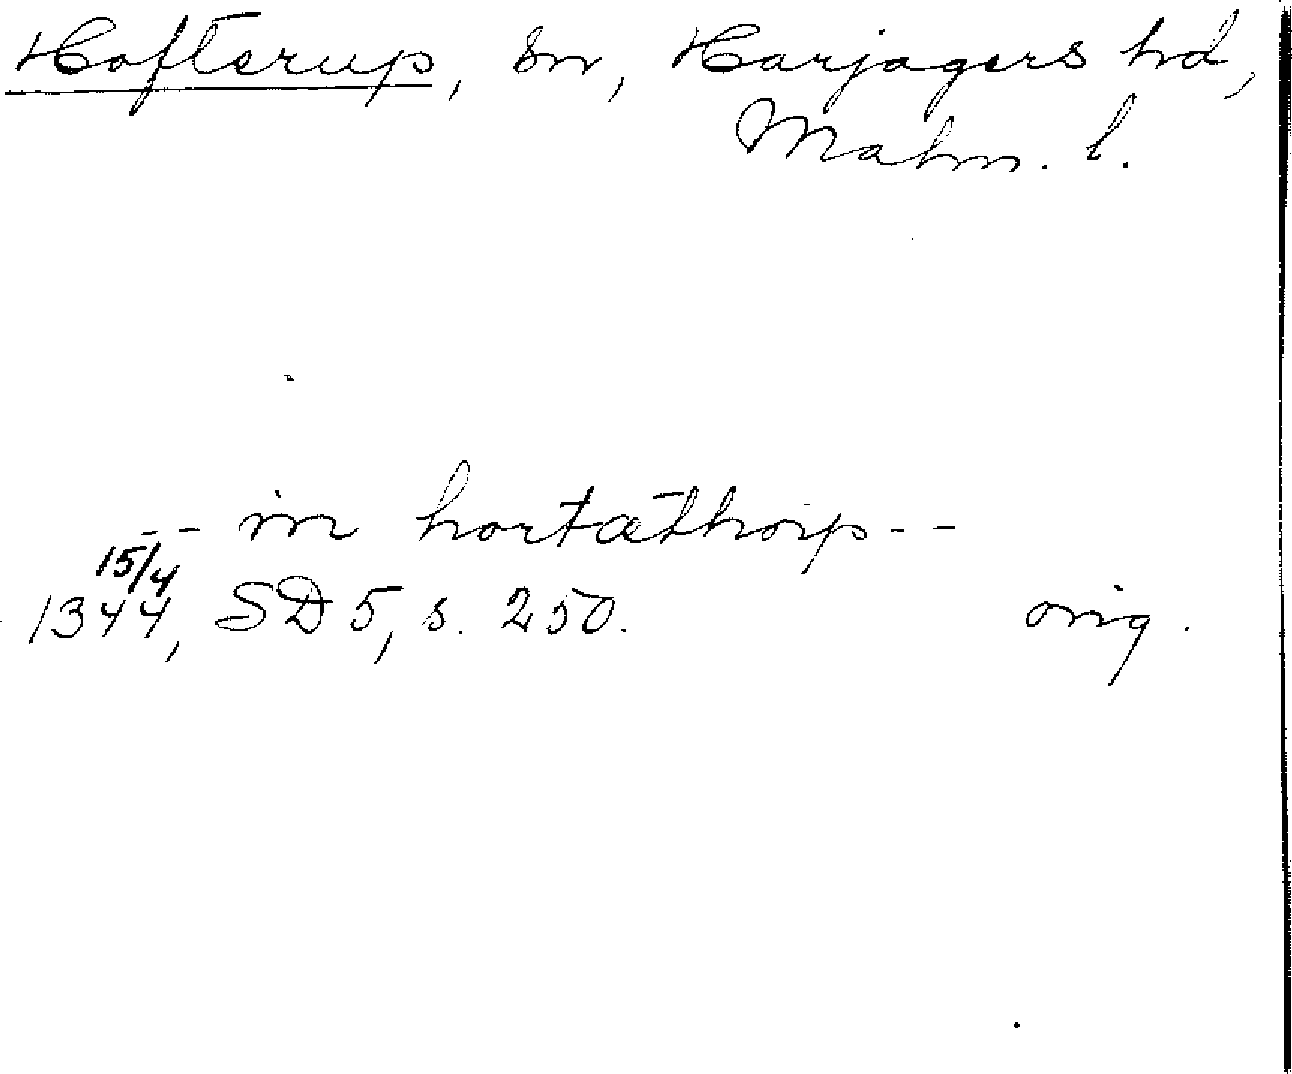 Hofterup, sn, Harjagers hd,
Malm. l.
-- in hortæthorp --
15/4
1344, SD 5, s. 250. orig.